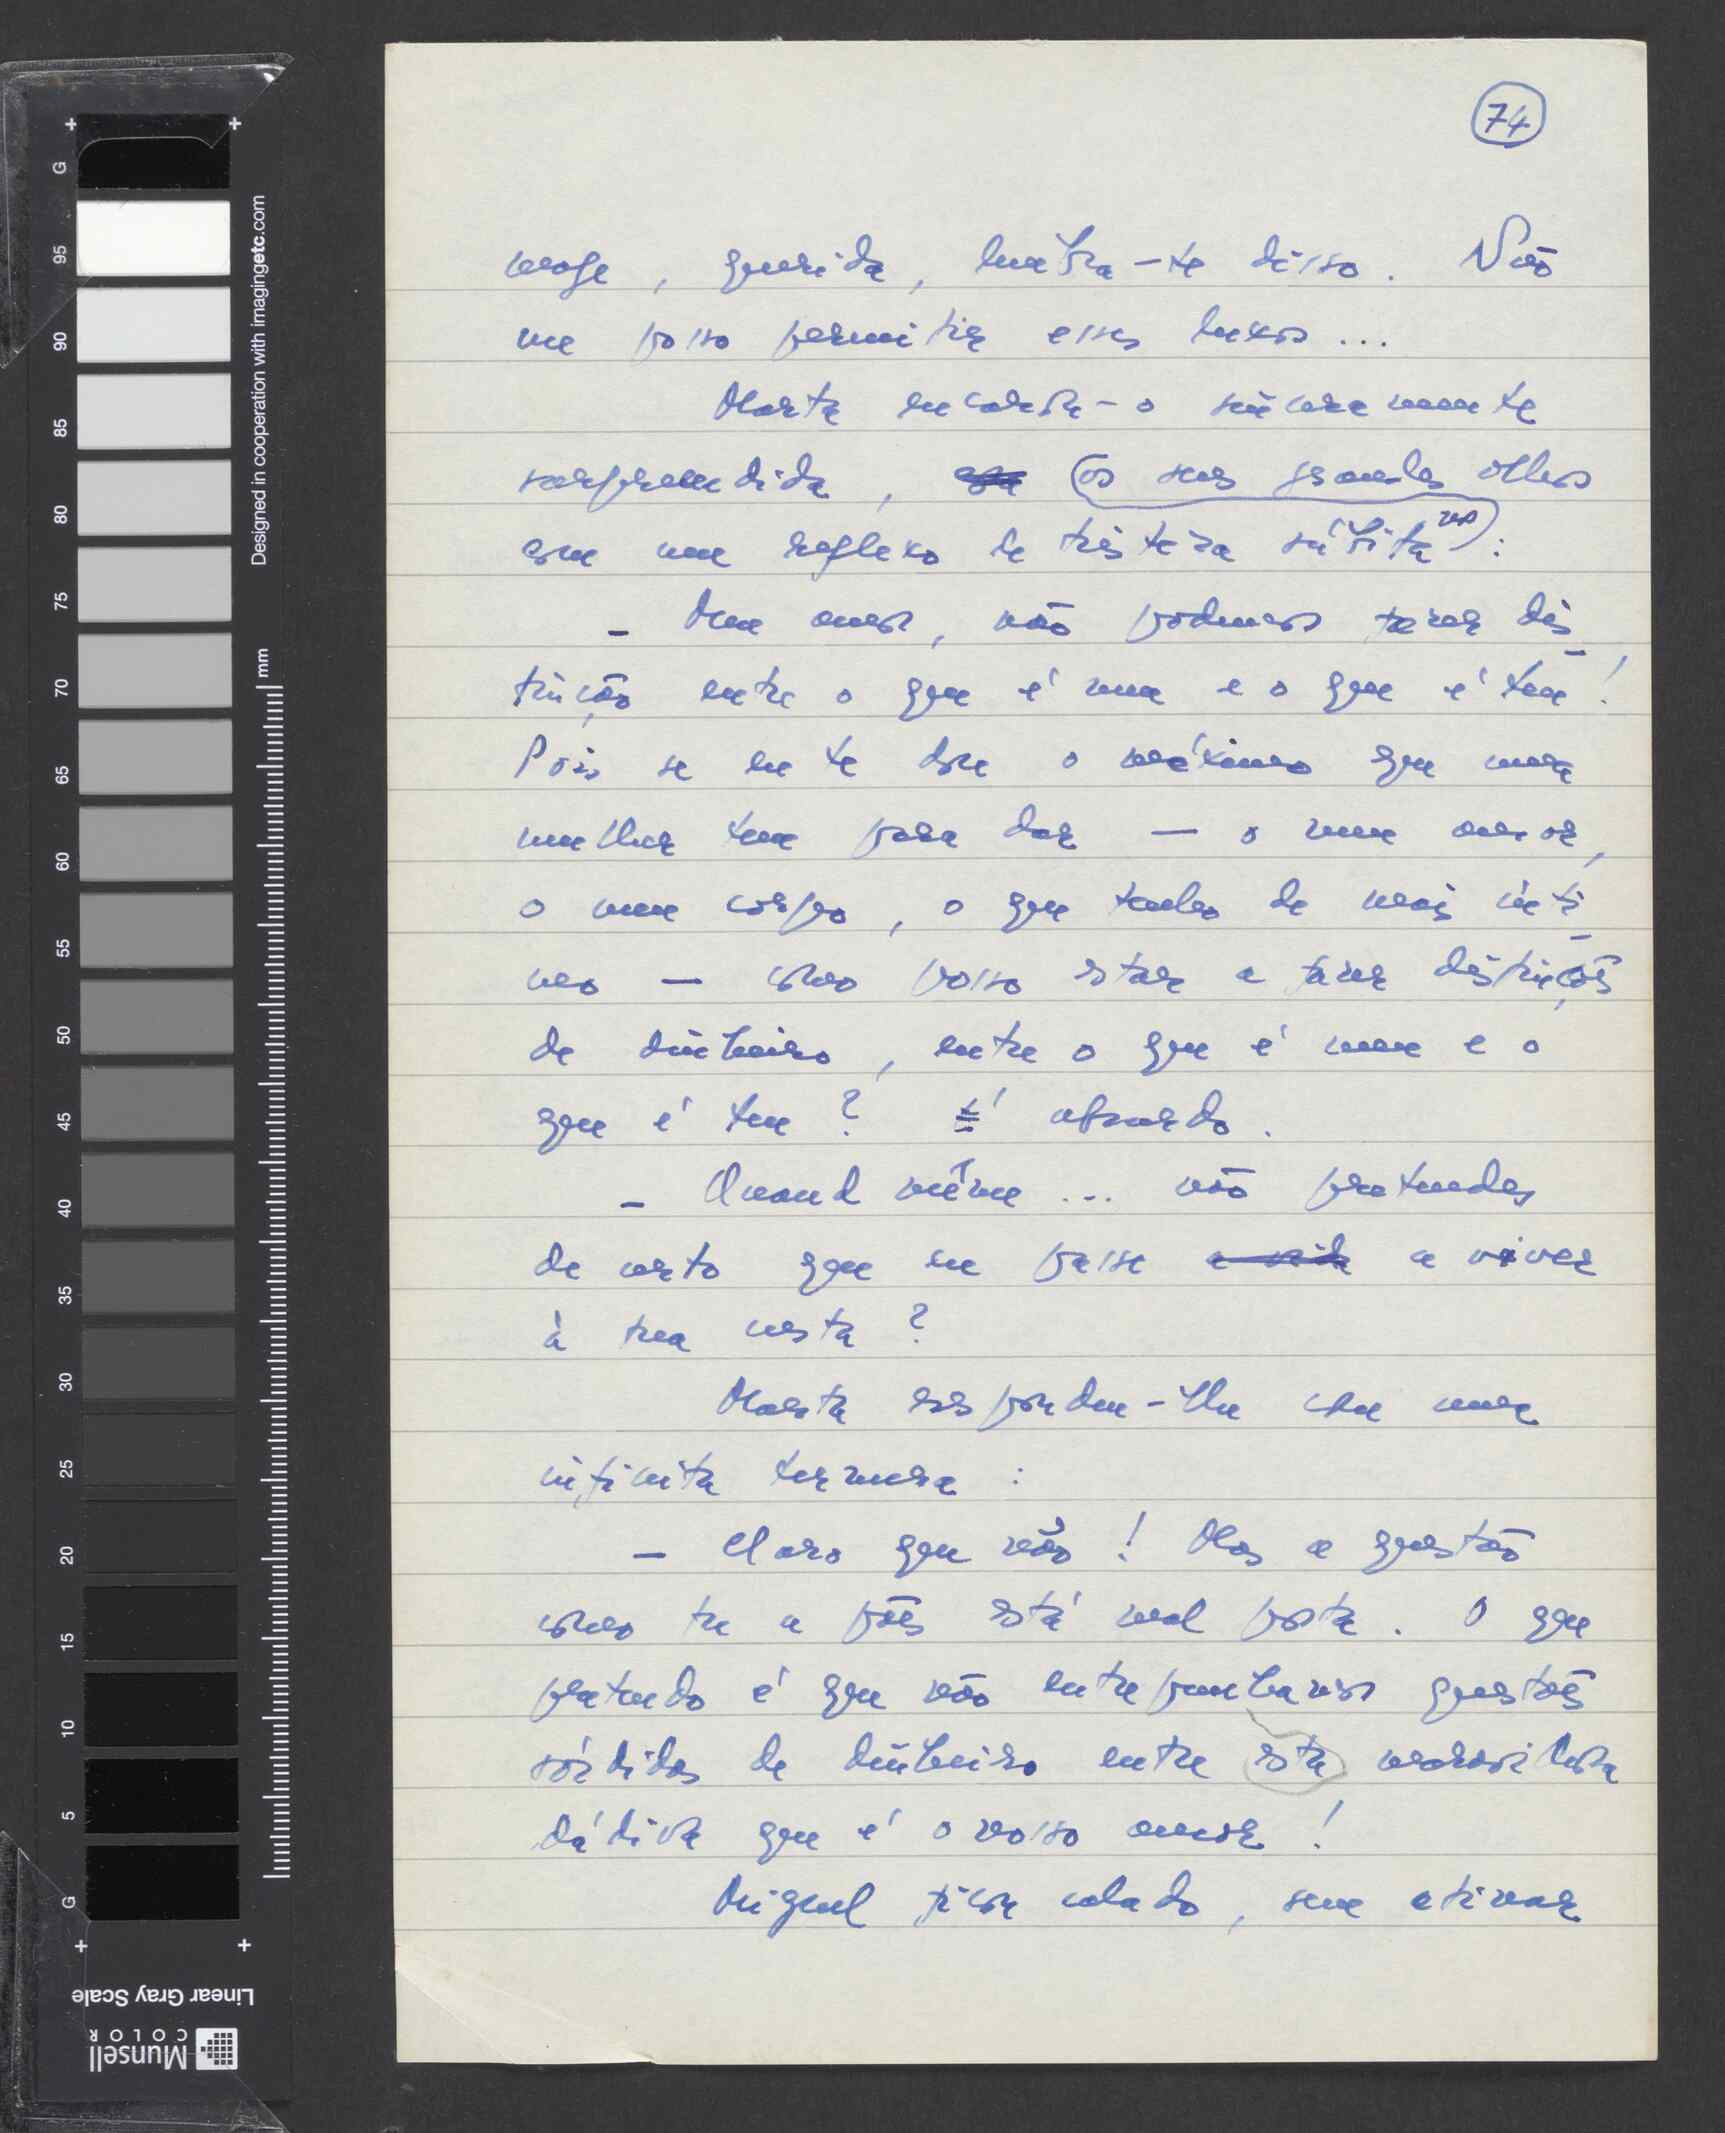 74
monge, querida, lembra-te disso. Não
me posso permitir esses luxos ...
Marta encarou-o sinceramente
surpreendida, os seus grandes olhos
com um reflexo de tristeza súbita :
— Meu amor, não podemos fazer dis-
tinção entre o que é meu e o que é teu !
Pois se eu te dou o máximo que uma
mulher tem para dar — o meu amor,
o meu corpo, o que tenho de mais ínti-
mo — como posso estar a fazer distinções
de dinheiro, entre o que é meu e o
que é teu ? É absurdo.
— Quand même ... não pretendes
de certo que eu passe a viver
à tua custa ?
Marta respondeu-lhe com uma
infinita ternura :
— Claro que não ! Mas a questão
como tu a pões está mal posta. O que
pretendo é que não entreponhamos questões
sórdidas de dinheiro entre esta maravilhosa
dádiva que é o nosso amor !
Miguel ficou calado, sem atinar
Designed in cooperation with imagingetc.com
mm
G
95
90
85
80
75
70
65
60
55
50
45
40
35
30
25
20
15
10
5
G
Linear Gray Scale
Munsell
COLOR